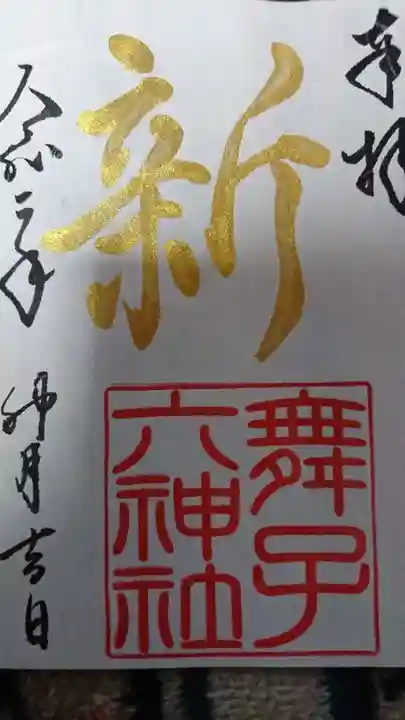 奉拝
新
舞子
六神社
令和二年 卯月吉日